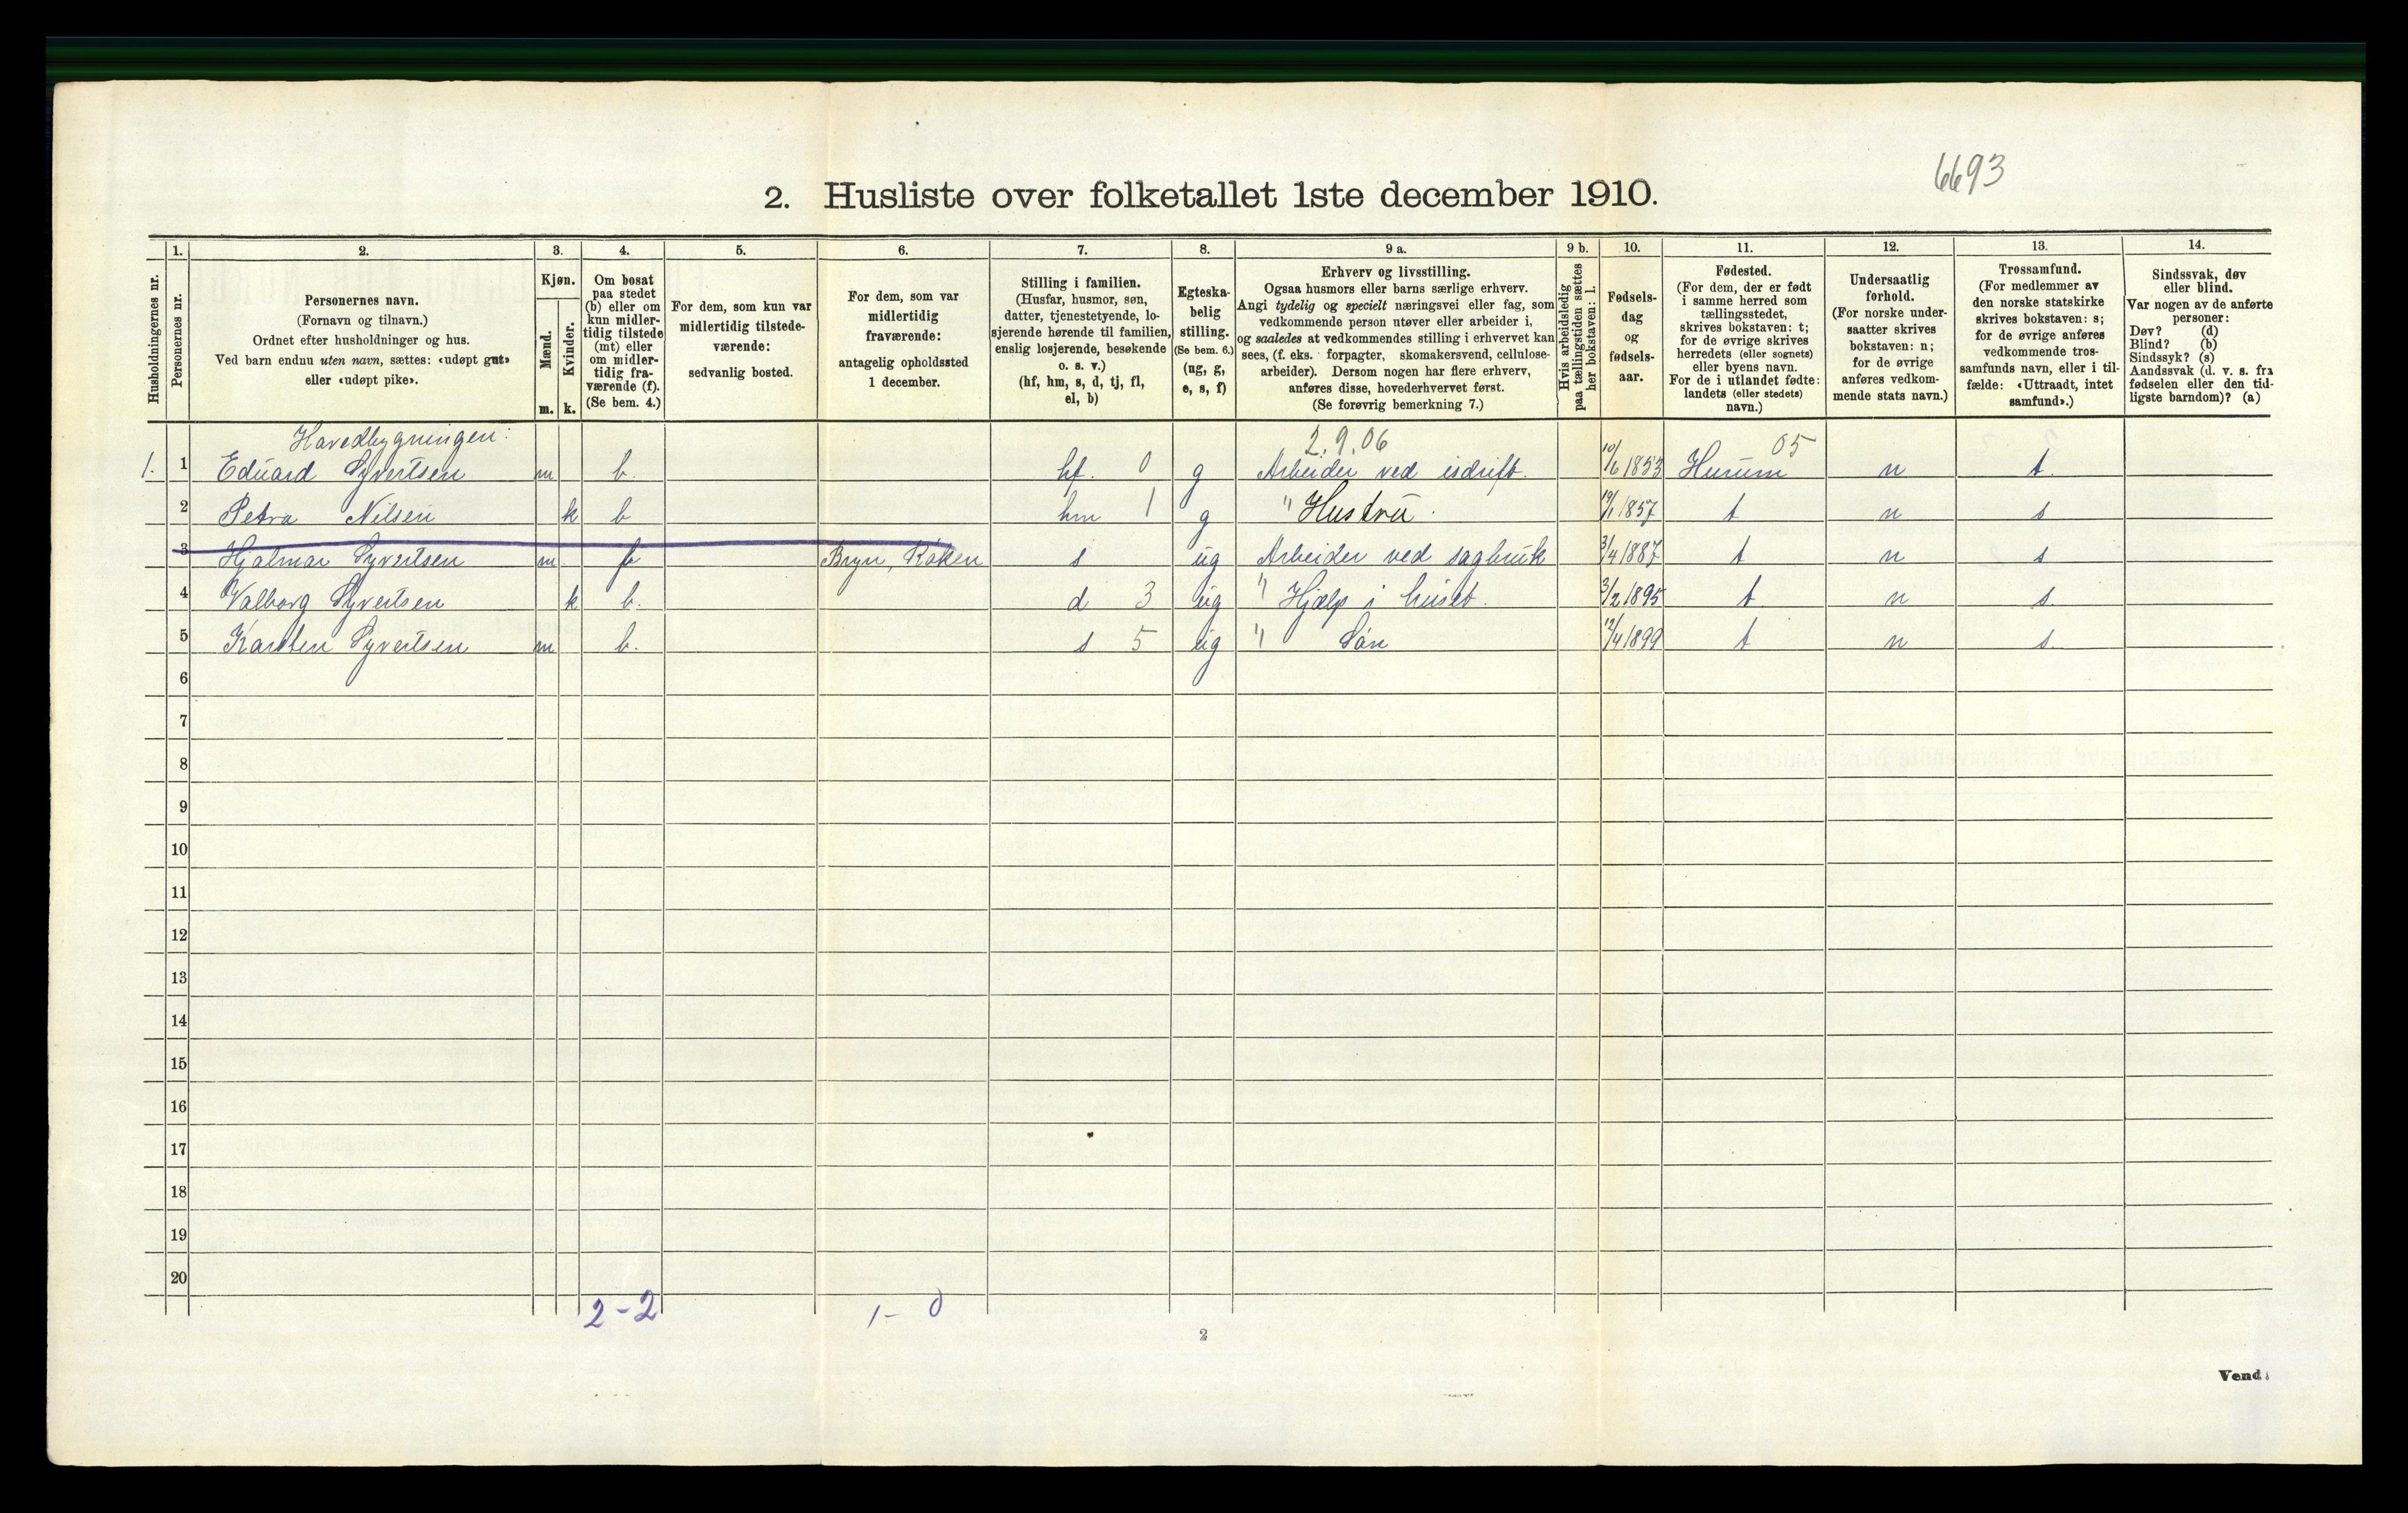 6693
2. Husliste over folketallet 1ste december 1910.
1. 2. 3. 4. 5. 6. 7. 8. 9 a. 9 b. 10. 11. 12. 13. 14.
Husholdningernes nr.
Personernes nr.
Personernes navn.
(Fornavn og tilnavn.)
Ordnet efter husholdninger og hus.
Ved barn endnu uten navn, sættes: «udøpt gut»
eller «udøpt pike».
Kjøn.
Mænd.
Kvinder.
m. k.
Om bosat
paa stedet
(b) eller om
kun midler-
tidig tilstede
(mt) eller
om midler-
tidig fra-
værende (f).
(Se bem. 4.)
For dem, som kun var
midlertidig tilstede-
værende:
sedvanlig bosted.
For dem, som var
midlertidig
fraværende:
antagelig opholdssted
1 december.
Stilling i familien.
(Husfar, husmor, søn,
datter, tjenestetyende, lo-
sjerende hørende til familien,
enslig losjerende, besøkende
o. s. v.)
(hf, hm, s, d, tj, fl,
el, b)
Egteska-
belig
stilling.
(Se bem. 6.)
(ug, g,
e, s, f)
Erhverv og livsstilling.
Ogsaa husmors eller barns særlige erhverv.
Angi tydelig og specielt næringsvei eller fag, som
vedkommende person utøver eller arbeider i,
og saaledes at vedkommendes stilling i erhvervet kan
sees, (f. eks. forpagter, skomakersvend, cellulose-
arbeider). Dersom nogen har flere erhverv,
anføres disse, hovederhvervet først.
(Se forøvrig bemerkning 7.)
Hvis arbeidsledig
paa tællingstiden sættes
her bokstaven: l.
Fødsels-
dag
og
fødsels-
aar.
Fødested.
(For dem, der er født
i samme herred som
tællingsstedet,
skrives bokstaven: t;
for de øvrige skrives
herredets (eller sognets)
eller byens navn.
For de i utlandet fødte:
landets (eller stedets)
navn.)
Undersaatlig
forhold.
(For norske under-
saatter skrives
bokstaven: n;
for de øvrige
anføres vedkom-
mende stats navn.)
Trossamfund.
(For medlemmer av
den norske statskirke
skrives bokstaven: s;
for de øvrige anføres
vedkommende tros-
samfunds navn, eller i til-
fælde: «Uttraadt, intet
samfund».)
Sindssvak, døv
eller blind.
Var nogen av de anførte
personer:
Døv? (d)
Blind? (b)
Sindssyk? (s)
Aandssvak (d. v. s. fra
fødselen eller den tid-
ligste barndom)? (a)
Hovedbygningen: 2.9.06 05
1. 1 Eduard Syvertsen m b. hf. 0 g Arbeider ved isdrift. 10/6 1853 Hurum n t.
2 Petra Nilsen k b hm 1 g " Hustru. 19/1 1857 t n s
3 Hjalmar Syvertsen m f Bryn, Røken s ug Arbeider ved sagbruk 3/4 1887 t n s
4 Valborg Syvertsen k b. d 3 ug " Hjælp i huset. 3/2 1895 t n s.
5 Karsten Syvertsen m b. s 5 ug " Søn 12/4 1899 t n s.
6
7
8
9
10
11
12
13
14
15
16
17
18
19
20
2-2 1-0
2
Vend